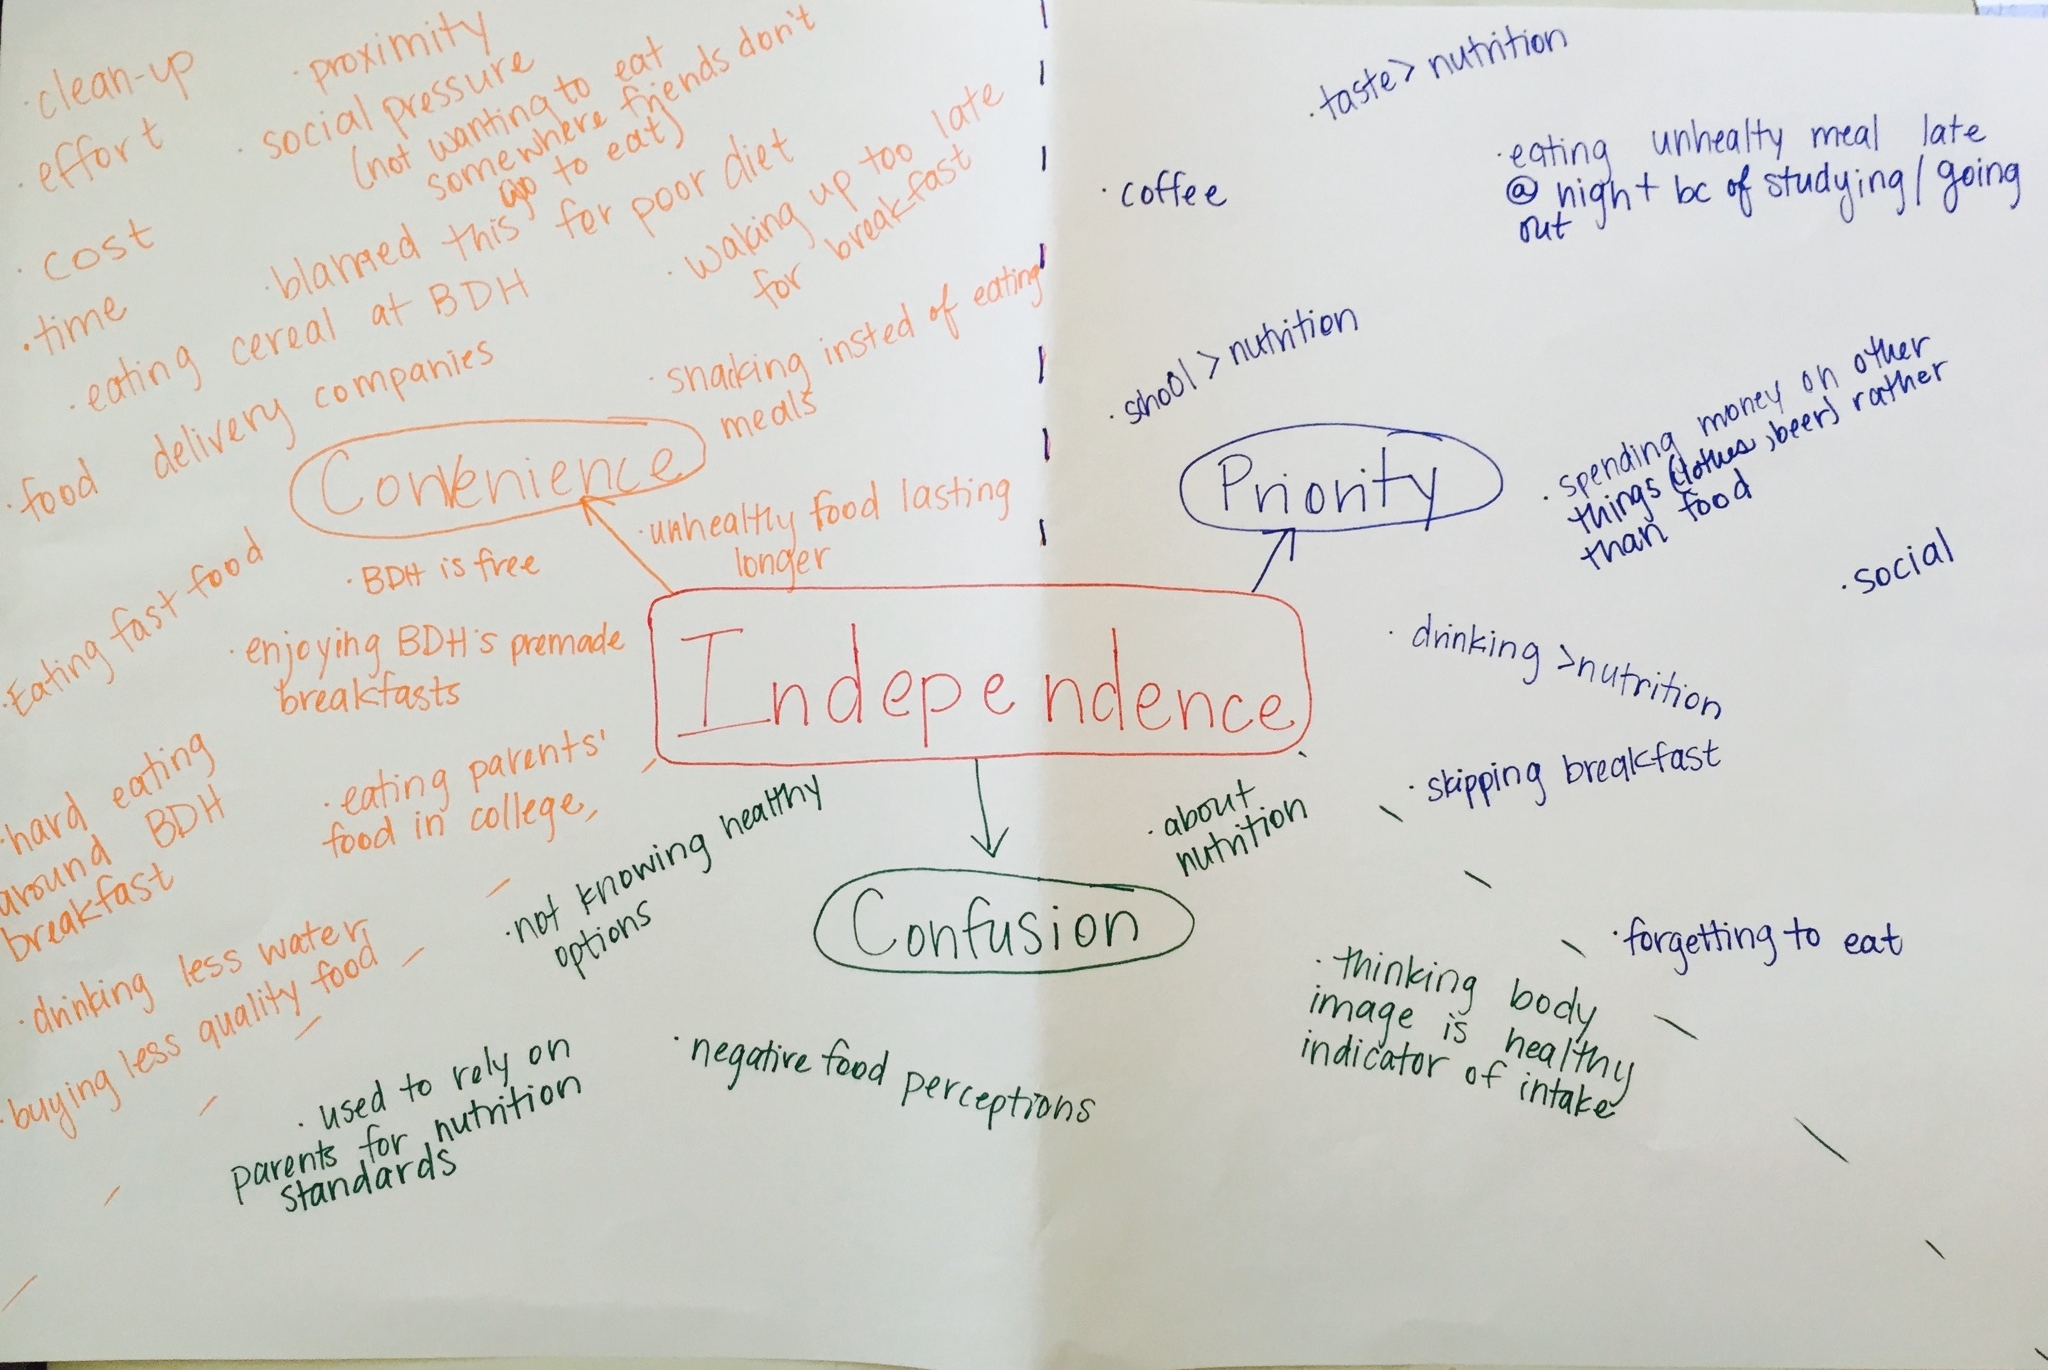 ·clean-up
·proximity
·effort
·social pressure
(not wanting to eat
somewhere friends don't
go to eat)
·cost
·blamed this for poor diet
·time
·waking up too late
for breakfast
·eating cereal at BDH
·snacking insted of eating
meals
·food delivery companies
Convenience
·unhealthy food lasting
longer
·BDH is free
·Eating fast food
·enjoying BDH's premade
breakfasts
·hard eating
around BDH
breakfast
·eating parents'
food in college,
·drinking less water,
·buying less quality food
·taste > nutrition
·coffee
·eating unhealty meal late
@ night bc of studying/going
out
·school > nutrition
Priority
·spending money on other
things (clothes, beer) rather
than food
·social
·drinking >nutrition
·skipping breakfast
·forgetting to eat
Independence
·not knowing healthy
options
·about
nutrition
Confusion
·used to rely on
parents for nutrition
standards
·negative food perceptions
·thinking body
image is healthy
indicator of intake